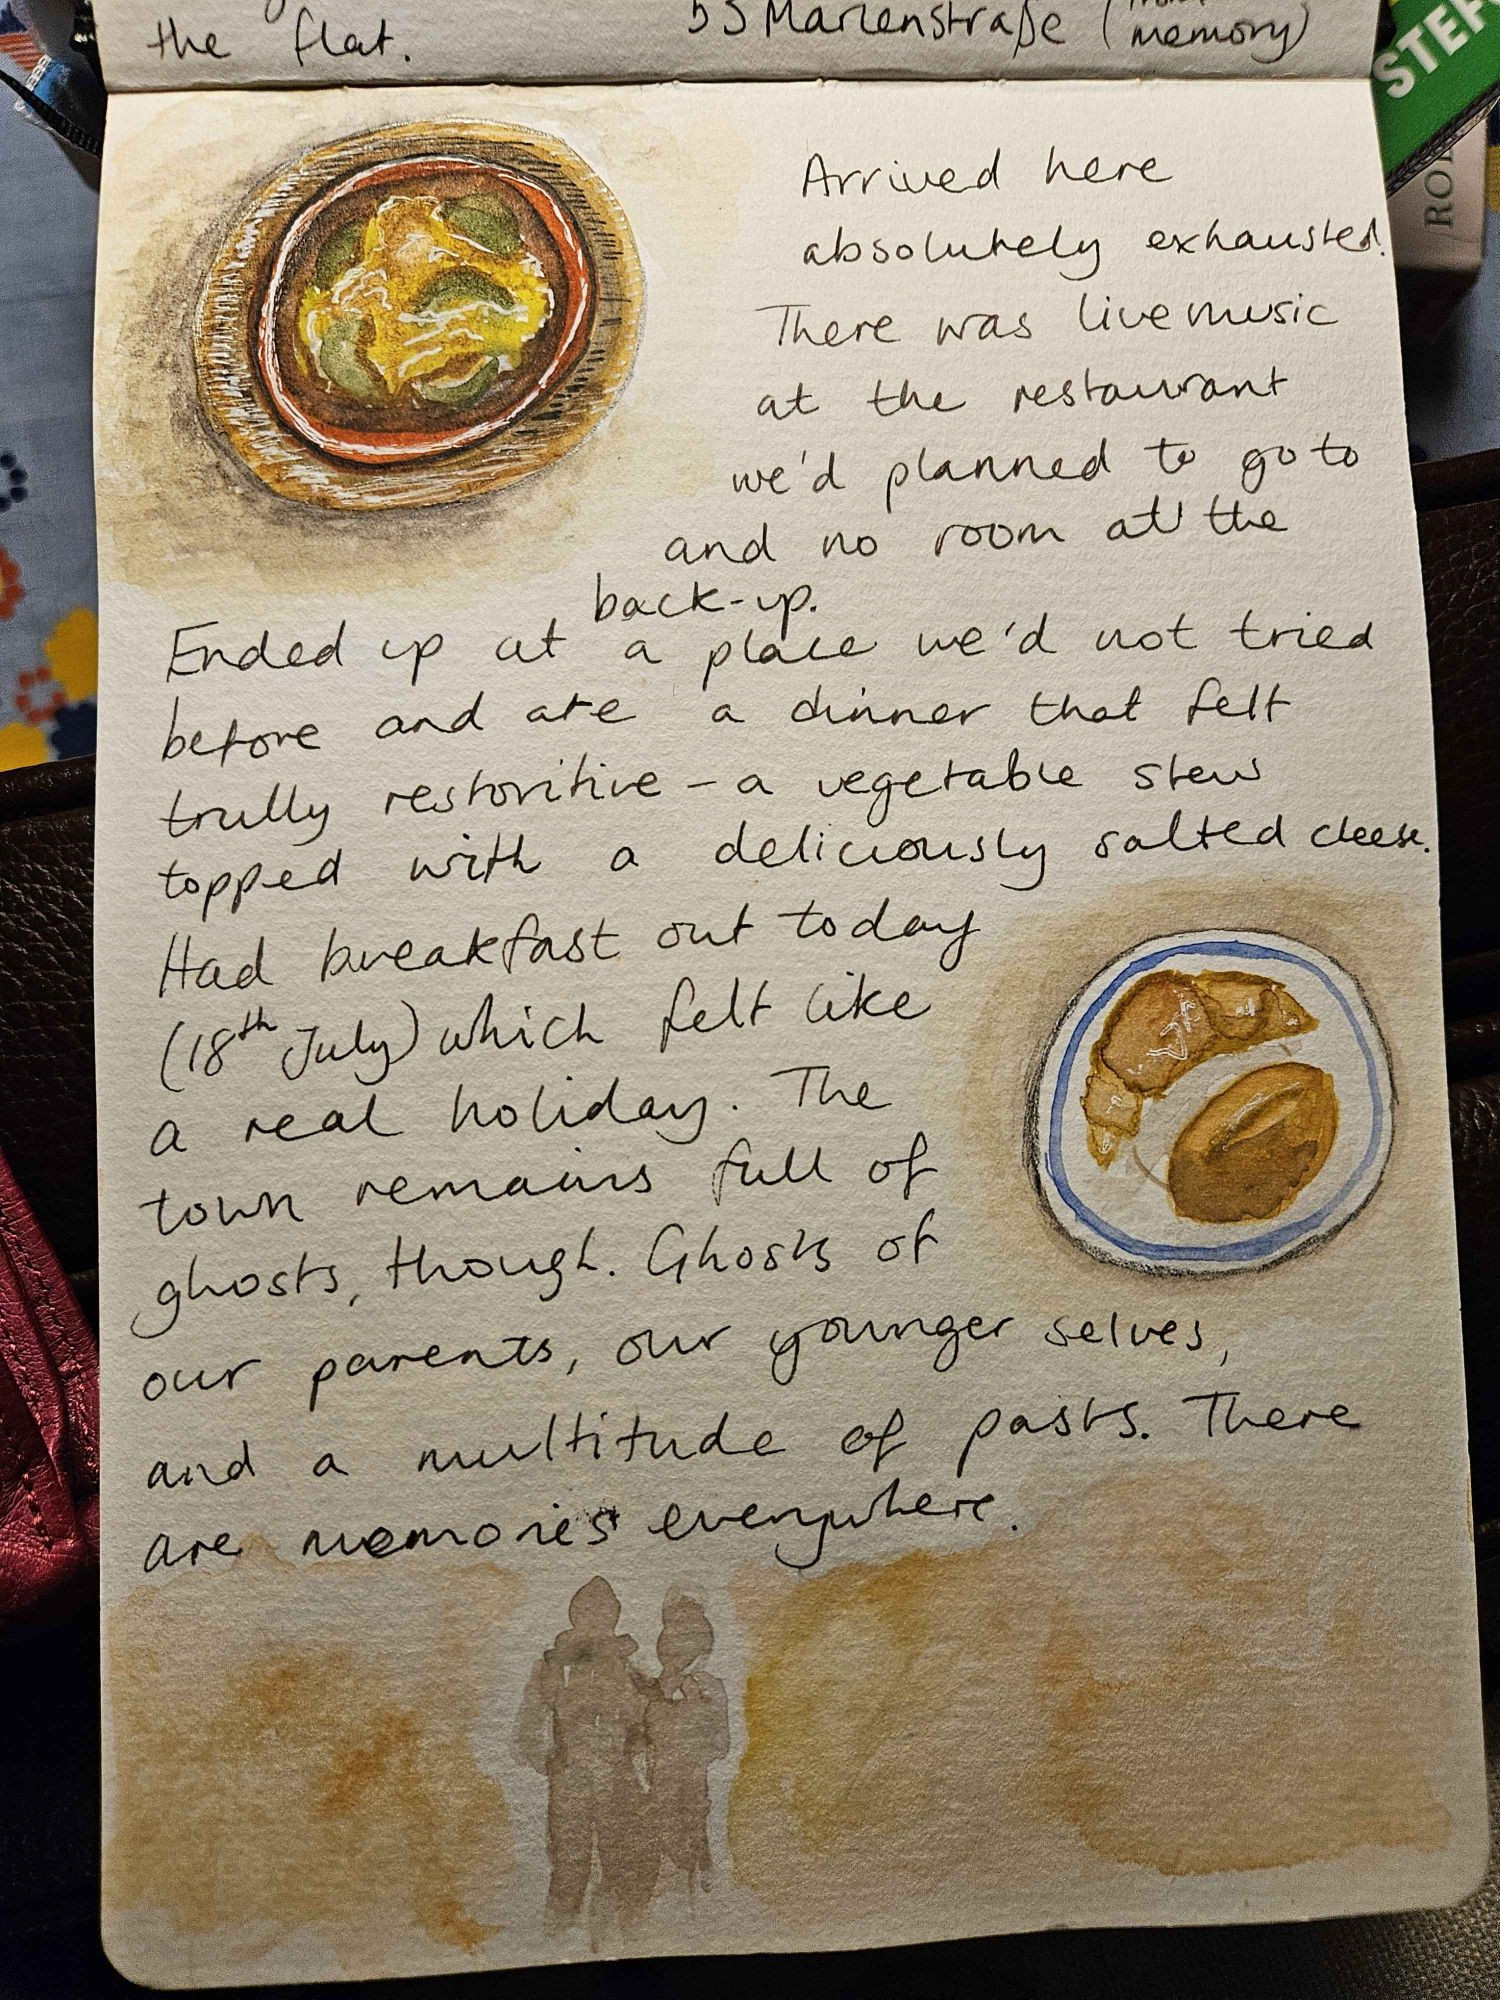 the flat.
53 Marienstraße (from memory)
STEF
ROL
Arrived here
absolutely exhausted.
There was live music
at the restaurant
we'd planned to go to
and no room at the
back-up.
Ended up at a place we'd not tried
before and ate a dinner that felt
trully restoritive - a vegetable stew
topped with a deliciously salted cheese.
Had breakfast out today
(18th July) which felt like
a real holiday. The
town remains full of
ghosts, though. Ghosts of
our parents, our younger selves,
and a multitude of pasts. There
are memories everywhere.